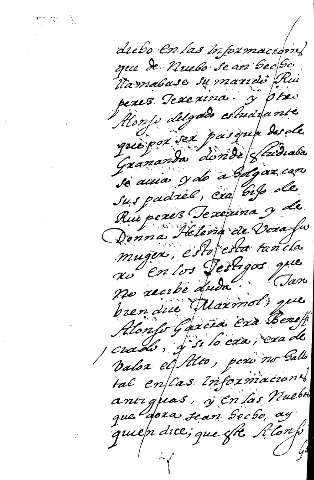 dicho en las informaciones
que de Nuebo sean hecho
llamabase su marido Rui
perez Texerina. y otro
Alonso delgado estudiante
que por ser pasqua desde
Grananda donde estudiaba
se auia ydo a holgar con
sus padres, era hijo de
Rui perez Texerina y de
Donna Helena de Vera su
muger, esto esta tan cla
ro en los Testigos que
no recibe duda. Tan
bien dice Marmol, que
Alonso Garcia era Benefi
ciado, y si lo era, era de
Valor el Alto, pero no hallo
tal en las informaciones
antiguas, y en las Nuebas
que aora sean hecho, ay
quien dice, que este Alonso